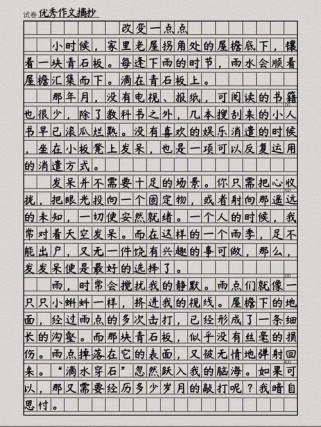 试卷优秀作文摘抄
改变一点点
小时候，家里老屋拐角处的屋檐底下，镶
着一块青石板。每逢下雨的时节，雨水会顺着
屋檐汇集而下。滴在青石板上。
那年月，没有电视、报纸，可阅读的书籍
也很少，除了教科书之外，几本搜刮来的小人
书早已滚瓜烂熟。没有喜欢的娱乐消遣的时候
，坐在小板凳上发呆，也是一项可以反复运用
的消遣方式。
发呆并不需要十足的场景。你只需把心收
拢，把眼光投向一个固定物，或者射向那遥远
的未知，一切便安然就绪。一个人的时候，我
常对着天空发呆。而在这样的一个雨季，足不
能出户，又无一件饶有兴趣的事可做，那么，
发发呆便是最好的选择了。
雨，时常会搅扰我的静默。而点们就像一
只只小蝌蚪一样，挤进我的视线。屋檐下的地
面，经过雨点的多次击打，已经形成了一条细
长的沟壑。而那块青石板，似乎没有丝毫的损
伤。雨点掉落在它的表面，又被无情地弹射回
来。“滴水穿石”忽然跃入我的脑海。如果可
以，那又需要经历多少岁月的敲打呢？我暗自
思忖。